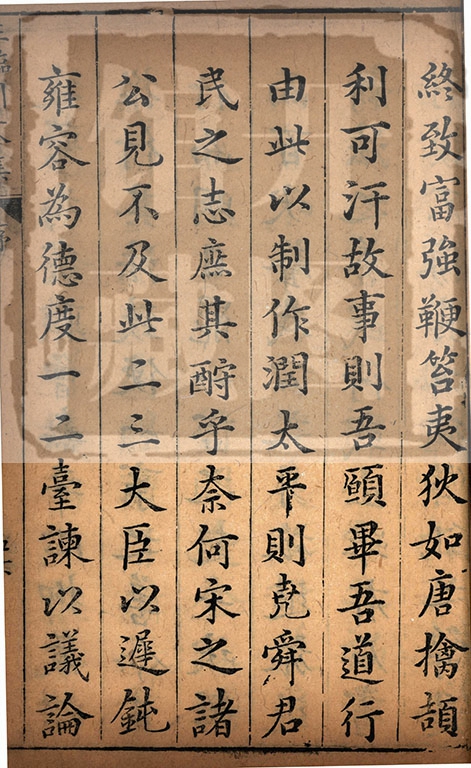 終致富強鞭笞夷狄如唐擒頡
利可汗故事則吾願畢吾道行
由此以制作潤太平則堯舜君
民之志庶其酧乎奈何宋之諸
公見不及此二三大臣以遲鈍
雍容為德度一二臺諫以議論